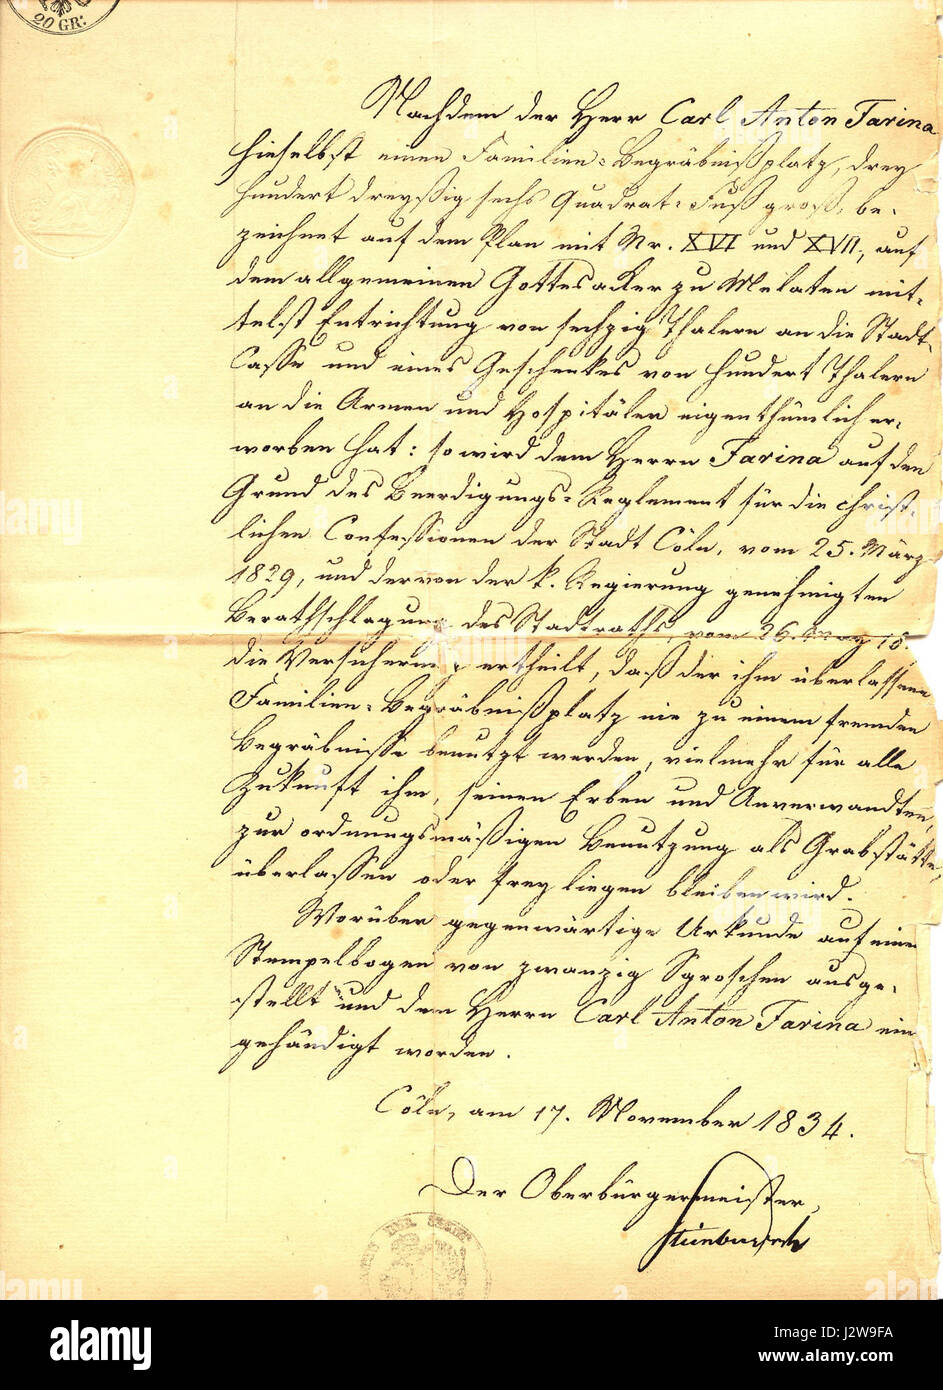 20 GR:
Nachdem der Herr Carl Anton Farina
hieselbst einen Familien-Begräbnißplatz, drey
hundert dreyßig sechs Quadrat-Fuß groß, be-
zeichnet auf dem Plan mit Nr. XVI und XVII, auf
dem allgemeinen Gottesacker zu Melaten mit-
telst Entrichtung von sechzig Thalern an die Stadt-
Casse und eines Geschenkes von hundert Thalern
an die Armen und Hospitäler eigenthümlich er-
worben hat: so wird dem Herrn Farina auf den
Grund des Beerdigungs-Reglement für die christ-
lichen Confessionen der Stadt Cöln, vom 25. März
1829, und der von der k. Regierung genehmigten
Berathschlagung des Stadtraths, vom 26. May 18
die Versicherung ertheilt, daß der ihm überlassene
Familien-Begräbnißplatz nie zu einem fremden
Begräbnisse benutzt werden, vielmehr für alle
Zukunft ihm, seinen Erben und Anverwandten,
zur ordnungsmäßigen Benutzung als Grabstätte
überlassen oder frey liegen bleiben wird.
Worüber gegenwärtige Urkunde auf einen
Stempelbogen von zwanzig Sgroschen ausge-
stellt und dem Herrn Carl Anton Farina ein
gehändigt worden.
Cöln, am 17. November 1834.
Der Oberbürgermeister,
Steinberger
alamy
Image ID: J2W9FA
www.alamy.com